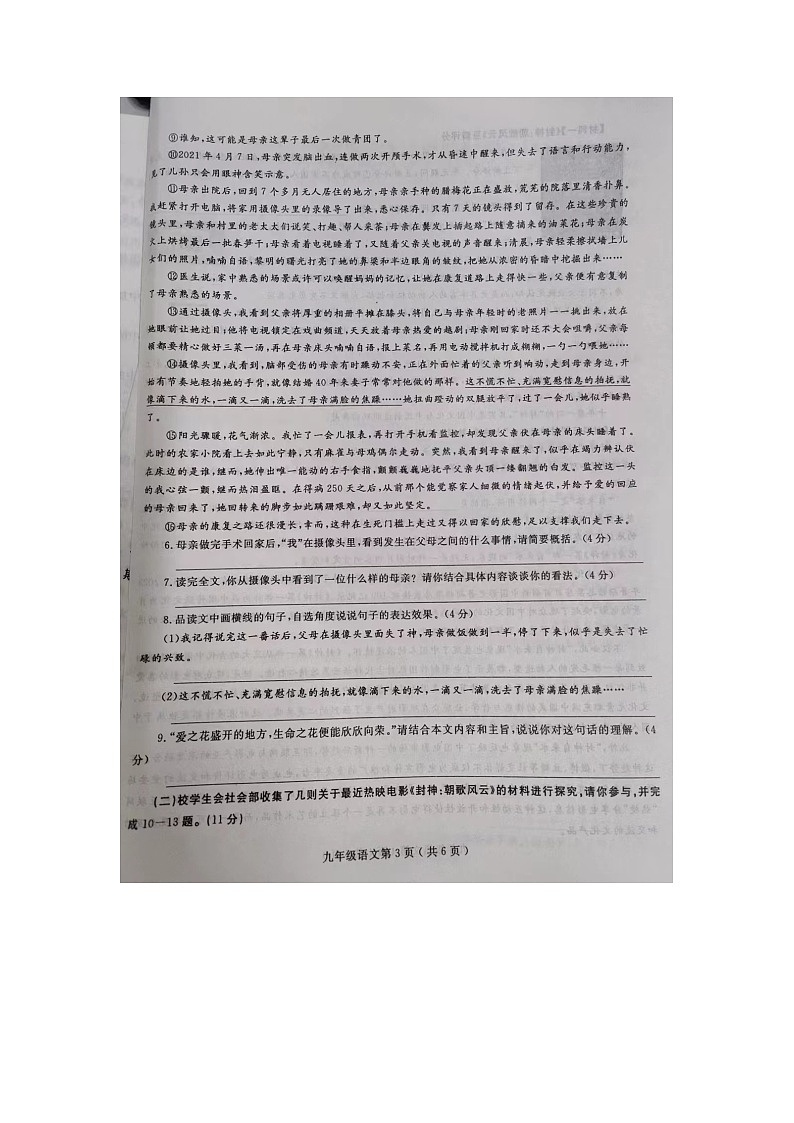 ⑨谁知,这可能是母亲这辈子最后一次做青团了。
⑩2021年4月7日,母亲突发脑出血,连做两次开颅手术,才从昏迷中醒来,但失去了语言和行动能力,
见了儿孙只会用眼神含笑示意。
⑪母亲出院后,回到7个多月无人居住的地方,母亲亲手种的腊梅花正在盛放,荒芜的院落里清香扑鼻。
我赶紧打开电脑,将家用摄像头里的录像导了出来,悉心保存。只有7天的镜头得到了留存。在这些珍贵的
镜头里,母亲和村里的老太太们说笑、打趣、帮人采茶;母亲在鬓发上插起路上随意摘来的油菜花;母亲在炭
火上烘烤最后一批春笋干;母亲看着电视睡着了,又随着父亲关电视的声音醒来;清晨,母亲轻柔擦拭墙上儿
女们的照片,喃喃自语,黎明的曙光打亮了她的鼻梁和半边眼角的皱纹,把她从浓密的昏暗中挖掘出来……
⑫医生说,家中熟悉的场景或许可以唤醒妈妈的记忆,让她在康复道路上走得快一些,父亲便有意复制
了母亲熟悉的场景。
⑬通过摄像头,我看到父亲将厚重的相册平摊在膝头,将自己与母亲年轻时的老照片一一挑出来,放在
她眼前让她过目;他将电视锁定在戏曲频道,天天放着母亲热爱的越剧;母亲刚回家时还不大会咀嚼,父亲每
顿都要精心做好三菜一汤,再在母亲床头喃喃自语,报上菜名,再用电动搅拌机打成糊糊,一勺一勺喂她……
⑭摄像头里,我看到,脑部受伤的母亲有时躁动不安,正在外面忙着的父亲听到响动,走到母亲身边,开
始有节奏地轻拍她的手背,就像结婚40年来妻子常常对他做的那样。这不慌不忙、充满宽慰信息的拍抚,就
像滴下来的水,一滴又一滴,洗去了母亲满脸的焦躁……她扭曲蹬动的双腿放平了,过了一会儿,她似乎睡熟
了。
⑮阳光骤暖,花气渐浓。我忙了一会儿报表,再打开手机看监控,却发现父亲伏在母亲的床头睡着了。
此时的农家小院看上去如此宁静,只有麻雀与母鸡偶尔走动。突然,我看到母亲醒来了,似乎在竭力辨认伏
在床边的是谁,继而,她伸出唯一能动的右手食指,颤颤巍巍地抚平父亲头顶一缕翻翘的白发。监控这一头
的我心弦一颤,继而热泪盈眶。在得病250天之后,从前那个能觉察家人细微的情绪起伏,并给予爱的回应
的母亲回来了,她回转来的脚步如此蹒跚艰难,却又如此坚定。
⑯母亲的康复之路还很漫长,幸而,这种在生死门槛上走过又得以回家的欣慰,足以支撑我们走下去。
6.母亲做完手术回家后,“我”在摄像头里,看到发生在父母之间的什么事情,请简要概括。(4分)
7.读完全文,你从摄像头中看到了一位什么样的母亲?请你结合具体内容谈谈你的看法。(4分)
8.品读文中画横线的句子,自选角度说说句子的表达效果。(4分)
(1)我记得说完这一番话后,父母在摄像头里面失了神,母亲做饭做到一半,停了下来,似乎是失去了忙
碌的兴致。
(2)这不慌不忙、充满宽慰信息的拍抚,就像滴下来的水,一滴又一滴,洗去了母亲满脸的焦躁……
9.“爱之花盛开的地方,生命之花便能欣欣向荣。”请结合本文内容和主旨,说说你对这句话的理解。(4
分)
(二)校学生会社会部收集了几则关于最近热映电影《封神:朝歌风云》的材料进行探究,请你参与,并完
成10—13题。(11分)
九年级语文第3页(共6页)